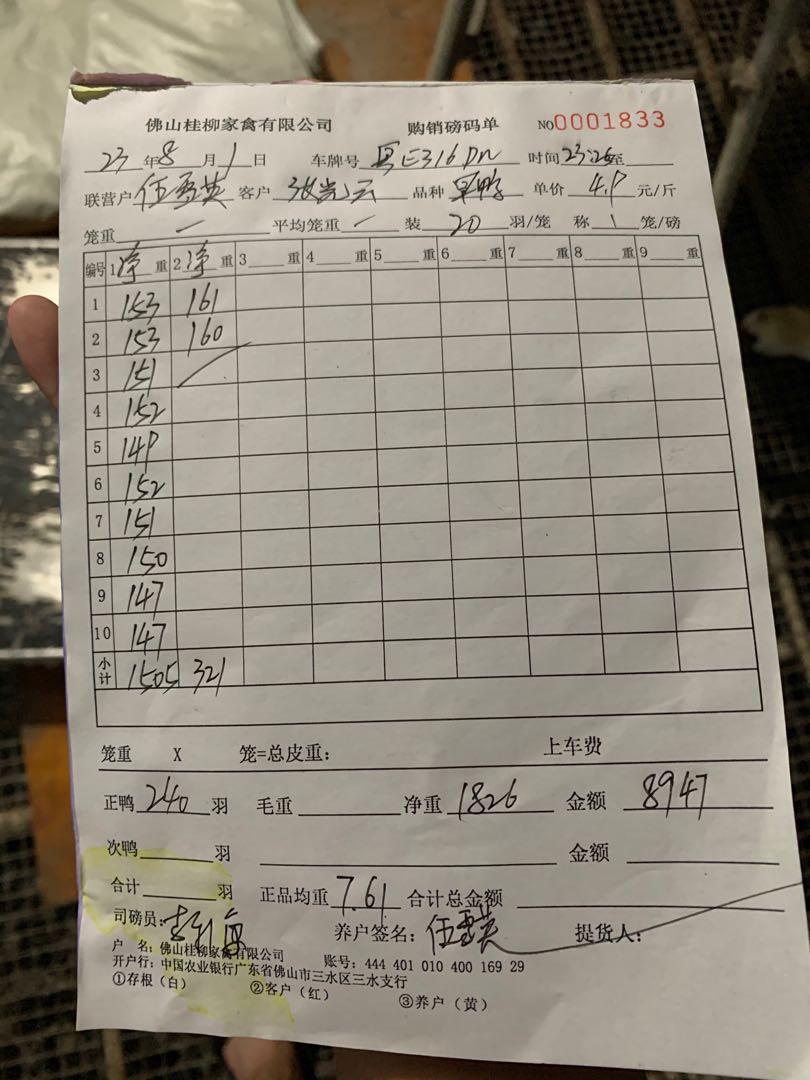 佛山桂柳家禽有限公司 购销磅码单 NO0001833
23年8月1日 车牌号 粤E316Dn 时间23:26至
联营户 伍雪英 客户 张 云 品种 旱鸭 单价 4.9 元/斤
笼重 — 平均笼重 装 20 羽/笼 称 1 笼/磅
编号 1净重 2净重 3重 4重 5重 6重 7重 8重 9重
1 153 161
2 153 160
3 151
4 152
5 149
6 152
7 151
8 150
9 147
10 147
小计 1505 321
笼重 X 笼=总皮重: 上车费
正鸭 240 羽 毛重 净重 1826 金额 8947
次鸭 羽 金额
合计 羽 正品均重 7.61 合计总金额
司磅员: 养户签名: 伍雪英 提货人:
户 名: 佛山桂柳家禽有限公司
开户行: 中国农业银行广东省佛山市三水区三水支行 账号: 444 401 010 400 169 29
①存根(白) ②客户(红) ③养户(黄)